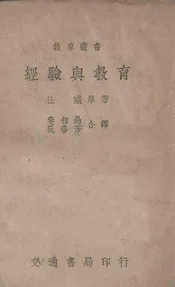 教育叢書
經驗與教育
杜威原著
李相勗
阮春芳 合譯
交通書局印行